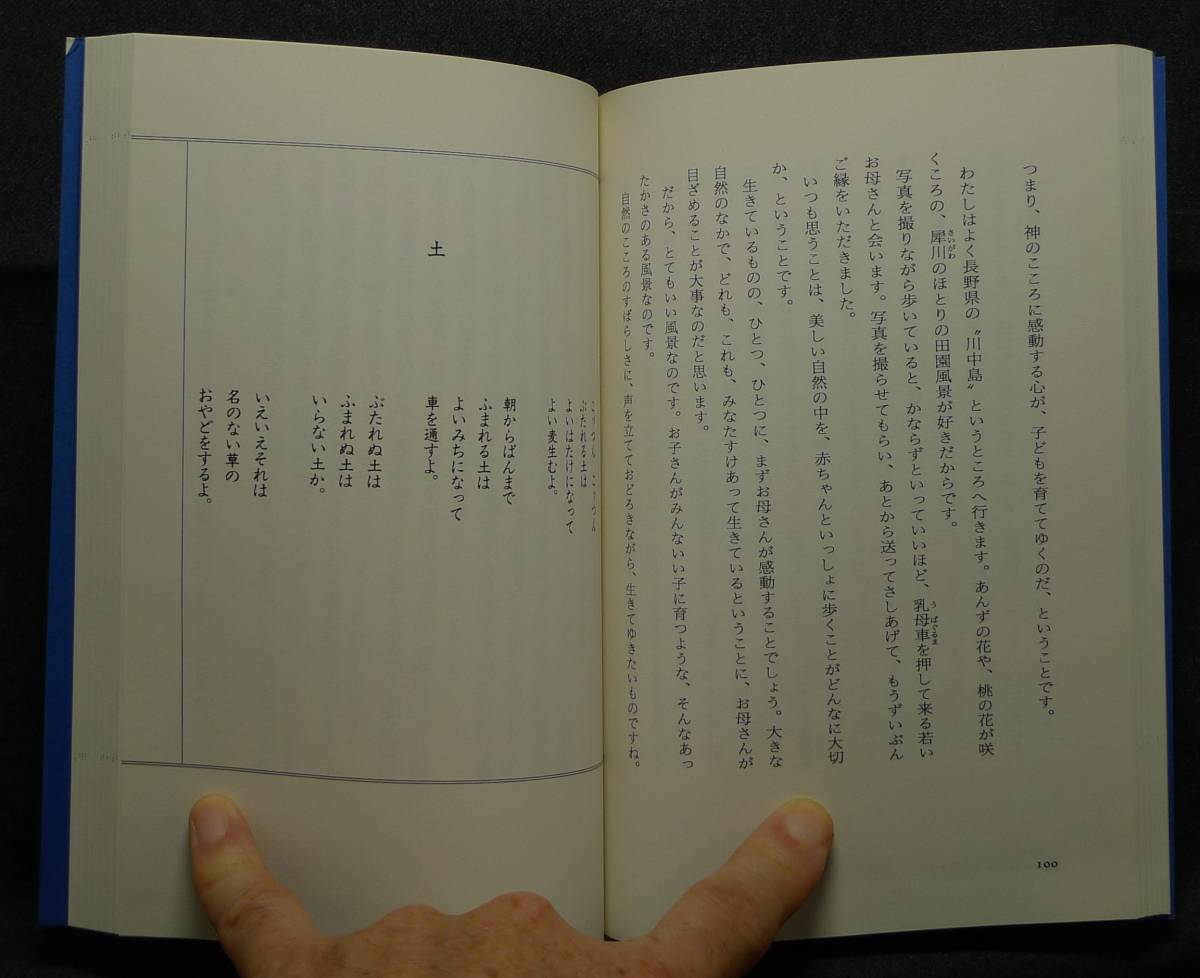 つまり、神のこころに感動する心が、子どもを育ててゆくのだ、ということです。
わたしはよく長野県の〝川中島〟というところへ行きます。あんずの花や、桃の花が咲
くころの、犀川のほとりの田園風景が好きだからです。
さいがわ
写真を撮りながら歩いていると、かならずといっていいほど、乳母車を押して来る若い
うばぐるま
お母さんと会います。写真を撮らせてもらい、あとから送ってさしあげて、もうずいぶん
ご縁をいただきました。
いつも思うことは、美しい自然の中を、赤ちゃんといっしょに歩くことがどんなに大切
か、ということです。
生きているものの、ひとつ、ひとつに、まずお母さんが感動することでしょう。大きな
自然のなかで、どれも、これも、みなたすけあって生きているということに、お母さんが
目ざめることが大事なのだと思います。
だから、とてもいい風景なのです。お子さんがみんないい子に育つような、そんなあっ
たかさのある風景なのです。
自然のこころのすばらしさに、声を立てておどろきながら、生きてゆきたいものですね。
100
土
こッつん こッつん
ぶたれる土は
よいはたけになって
よい麦生むよ。
朝からばんまで
ふまれる土は
よいみちになって
車を通すよ。
ぶたれぬ土は
ふまれぬ土は
いらない土か。
いえいえそれは
名のない草の
おやどをするよ。